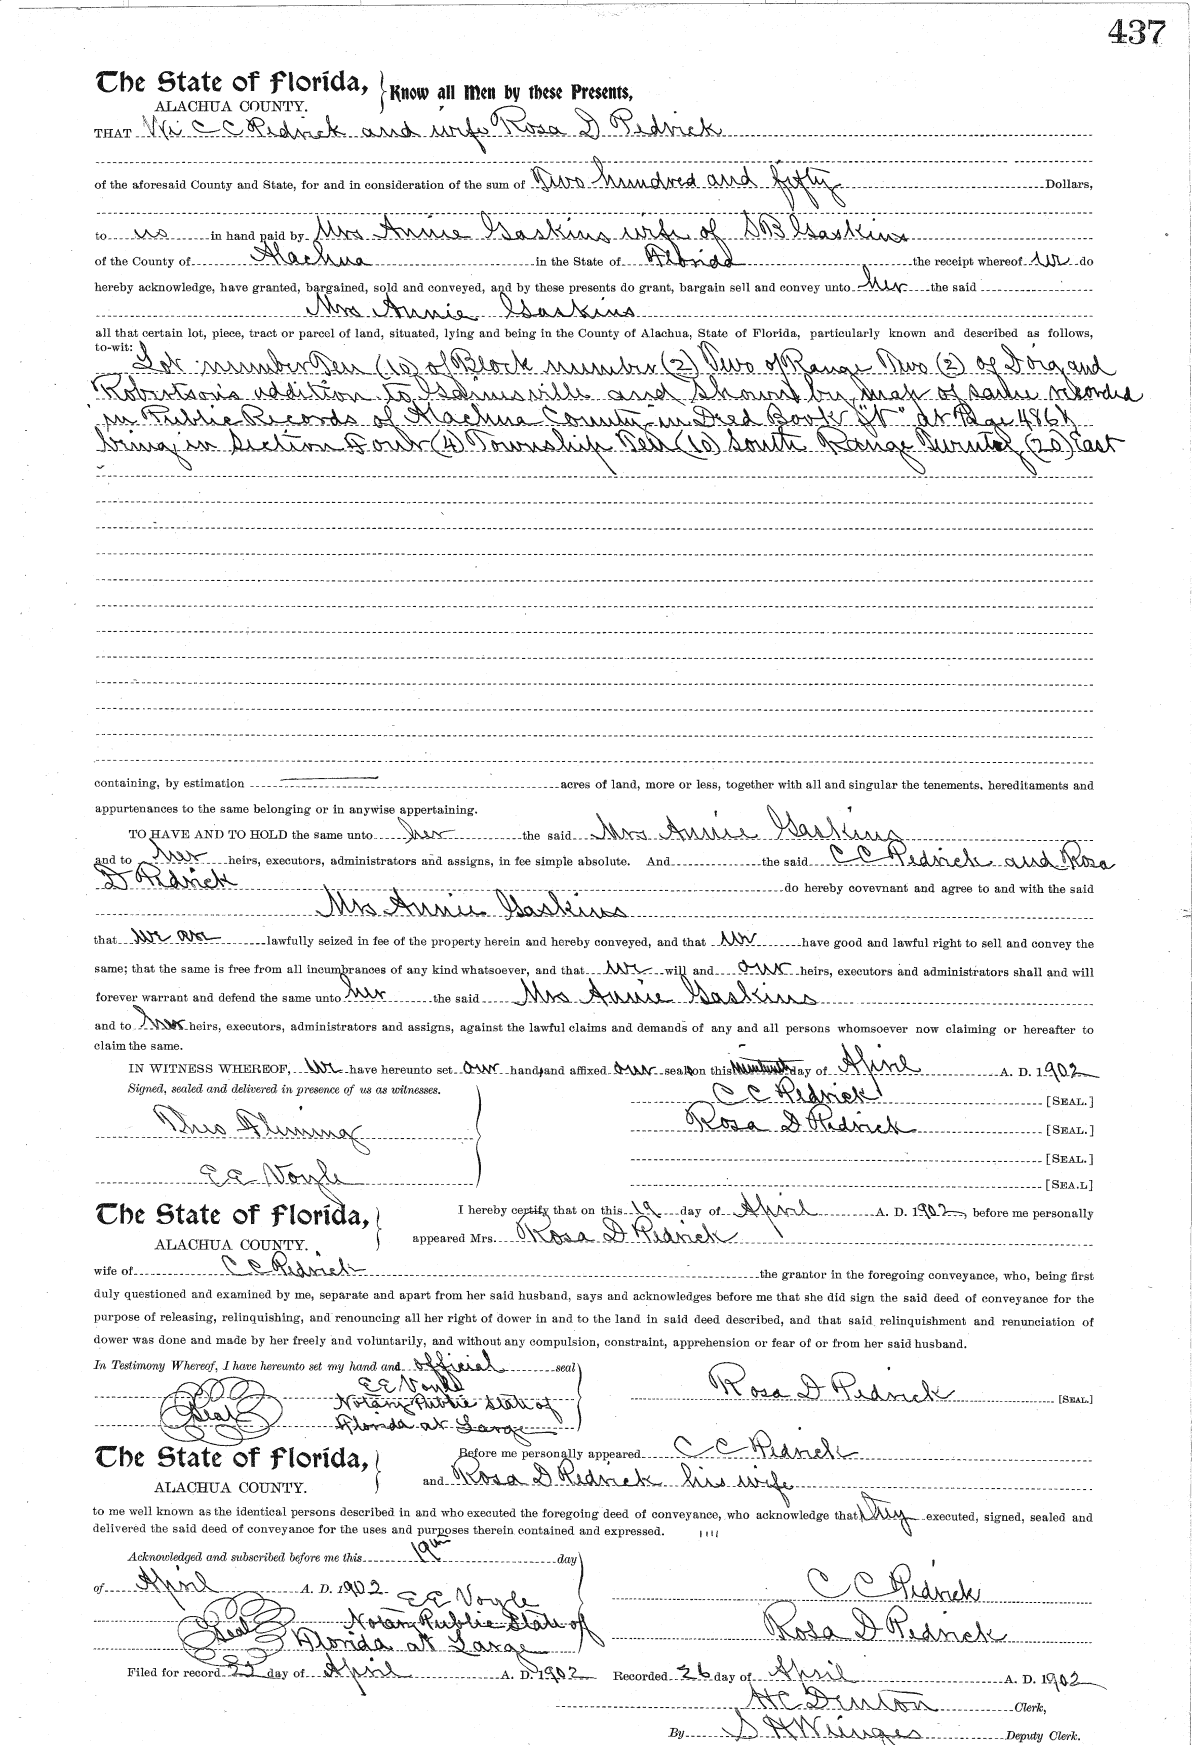 437
The State of Florida, Know all Men by these Presents,
ALACHUA COUNTY.
THAT We C C Pedrick and wife Rosa D Pedrick
of the aforesaid County and State, for and in consideration of the sum of Two hundred and fifty Dollars,
to us in hand paid by Mrs Annie Gaskins wife of S B Gaskins
of the County of Alachua in the State of Florida the receipt whereof we do
hereby acknowledge, have granted, bargained, sold and conveyed, and by these presents do grant, bargain sell and convey unto her the said
Mrs Annie Gaskins
all that certain lot, piece, tract or parcel of land, situated, lying and being in the County of Alachua, State of Florida, particularly known and described as follows,
to-wit: Lot number Ten (10) of Block number (2) Two of Range Two (2) of Doig and
Robertson's addition to Gainesville and shown by map of same recorded
in Public Records of Alachua County in Deed Book at Page 486
being in Section Four (4) Township Ten (10) South Range Twenty (20) East
containing, by estimation acres of land, more or less, together with all and singular the tenements, hereditaments and
appurtenances to the same belonging or in anywise appertaining.
TO HAVE AND TO HOLD the same unto her the said Mrs Annie Gaskins
and to her heirs, executors, administrators and assigns, in fee simple absolute. And the said C C Pedrick and Rosa
D Pedrick do hereby covevnant and agree to and with the said
Mrs Annie Gaskins
that we are lawfully seized in fee of the property herein and hereby conveyed, and that we have good and lawful right to sell and convey the
same; that the same is free from all incumbrances of any kind whatsoever, and that we will and our heirs, executors and administrators shall and will
forever warrant and defend the same unto her the said Mrs Annie Gaskins
and to her heirs, executors, administrators and assigns, against the lawful claims and demands of any and all persons whomsoever now claiming or hereafter to
claim the same.
IN WITNESS WHEREOF, we have hereunto set our hands and affixed our seals on this nineteenth day of April A. D. 1902
Signed, sealed and delivered in presence of us as witnesses.
C C Pedrick [SEAL.]
Theo Fleming
Rosa D Pedrick [SEAL.]
[SEAL.]
E E Voyle
[SEA.L]
The State of Florida, I hereby certify that on this 19 day of April A. D. 1902, before me personally
ALACHUA COUNTY. appeared Mrs. Rosa D Pedrick
wife of C C Pedrick the grantor in the foregoing conveyance, who, being first
duly questioned and examined by me, separate and apart from her said husband, says and acknowledges before me that she did sign the said deed of conveyance for the
purpose of releasing, relinquishing, and renouncing all her right of dower in and to the land in said deed described, and that said relinquishment and renunciation of
dower was done and made by her freely and voluntarily, and without any compulsion, constraint, apprehension or fear of or from her said husband.
In Testimony Whereof, I have hereunto set my hand and official seal
E E Voyle
Rosa D Pedrick [SEAL]
Seal Notary Public State of
Florida at Large
The State of Florida, Before me personally appeared C C Pedrick
ALACHUA COUNTY. and Rosa D Pedrick his wife
to me well known as the identical persons described in and who executed the foregoing deed of conveyance, who acknowledge that they executed, signed, sealed and
delivered the said deed of conveyance for the uses and purposes therein contained and expressed.
Acknowledged and subscribed before me this 19th day
of April A. D. 1902 C C Pedrick
E E Voyle
Seal Notary Public State of Rosa D Pedrick
Florida at Large
Filed for record 22 day of April A. D. 1902 Recorded 26 day of April A. D. 1902
H C Denton Clerk,
By S H Wienges Deputy Clerk.